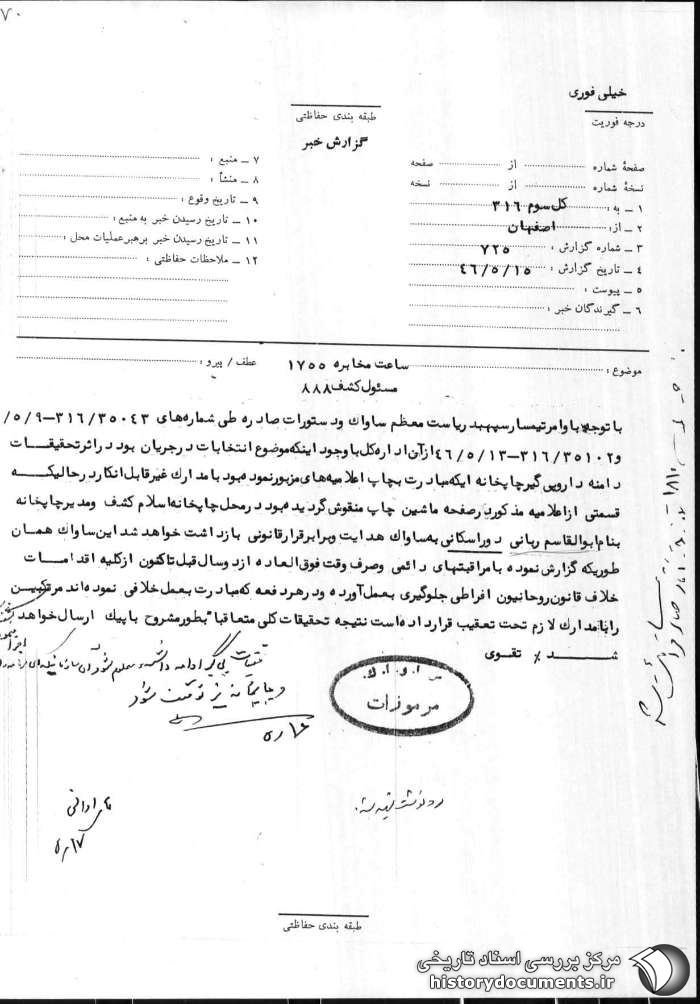 ۷۰
خیلی فوری
درجه فوریت
طبقه بندی حفاظتی
گزارش خبر
صفحهٔ شماره از صفحه
نسخهٔ شماره از نسخه
۱ ـ به : کل سوم ۳۱۶
۲ ـ از : اصفهان
۳ ـ شماره گزارش : ۷۲۵
۴ ـ تاریخ گزارش : ۴۶/۵/۱۵
۵ ـ پیوست :
۶ ـ گیرندگان خبر :
۷ ـ منبع :
۸ ـ منشأ :
۹ ـ تاریخ وقوع :
۱۰ ـ تاریخ رسیدن خبر به منبع :
۱۱ ـ تاریخ رسیدن خبر برهبر عملیات محل :
۱۲ ـ ملاحظات حفاظتی :
موضوع : ساعت مخابره ۱۷۵۵ عطف / پیرو :
مسئول کشف ۸۸۸
با توجه باوامر تیمسار سپهبد ریاست معظم ساواك و دستورات صادره طی شماره‌های ۳۱۶/۳۵۰۴۳-۵/۹/
و ۳۱۶/۳۵۱۰۲-۴۶/۵/۱۳ از آن اداره کل با وجود اینکه موضوع انتخابات در جریان بود در اثر تحقیقات
دامنه دار و پی گیر چاپخانه ایکه مبادرت بچاپ اعلامیه‌های مزبور نموده بود با مدارك غیر قابل انکار در حالیکه
قسمتی از اعلامیه مذکور در صفحه ماشین چاپ منقوش گردیده بود در محل چاپخانه اسلام کشف و مدیر چاپخانه
بنام ابوالقاسم ربانی دوراسکانی به ساواك هدایت و برابر قرار قانونی بازداشت خواهد شد این ساواك همان
طوریکه گزارش نموده با مراقبتهای دائمی و صرف وقت فوق العاده از دو سال قبل تاکنون از کلیه اقدامات
خلاف قانون روحانیون افراطی جلوگیری بعمل آورده و در هر دفعه که مبادرت بعمل خلافی نموده اند مرتکبین
را با مدارك لازم تحت تعقیب قرار داده است نتیجه تحقیقات کلی متعاقبا" بطور مشروح با پیك ارسال خواهد
شد ٪ تقوی
ساواك
مرموزات
طبقه بندی حفاظتی
مرکز بررسی اسناد تاریخی
historydocuments.ir